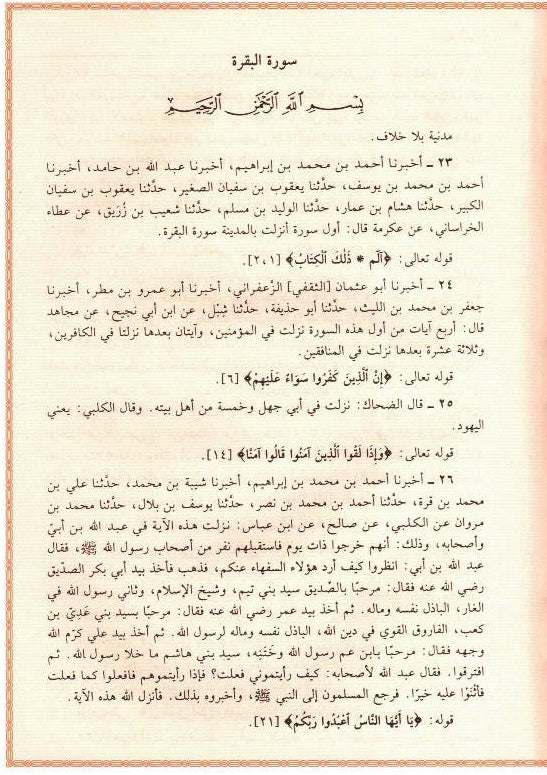 سورة البقرة
بِسْمِ اللَّهِ الرَّحْمَٰنِ الرَّحِيمِ
مدنية بلا خلاف.
٢٣ ـ أخبرنا أحمد بن محمد بن إبراهيم، أخبرنا عبد الله بن حامد، أخبرنا
أحمد بن محمد بن يوسف، حدَّثنا يعقوب بن سفيان الصغير، حدَّثنا يعقوب بن سفيان
الكبير، حدَّثنا هشام بن عمار، حدَّثنا الوليد بن مسلم، حدَّثنا شعيب بن زُرَيق، عن عطاء
الخراساني، عن عكرمة قال: أول سورة أنزلت بالمدينة سورة البقرة.
قوله تعالى: ﴿الٓمٓ * ذَٰلِكَ ٱلْكِتَابُ﴾ [٢،١].
٢٤ ـ أخبرنا أبو عثمان [الثقفي] الزَّعفراني، أخبرنا أبو عمرو بن مطر، أخبرنا
جعفر بن محمد بن الليث، حدَّثنا أبو حذيفة، حدَّثنا شِبْل، عن ابن أبي نجيح، عن مجاهد
قال: أربع آيات من أول هذه السورة نزلت في المؤمنين، وآيتان بعدها نزلتا في الكافرين،
وثلاثة عشرة بعدها نزلت في المنافقين.
قوله تعالى: ﴿إِنَّ ٱلَّذِينَ كَفَرُوا سَوَاءٌ عَلَيْهِمْ﴾ [٦].
٢٥ ـ قال الضحاك: نزلت في أبي جهل وخمسة من أهل بيته. وقال الكلبي: يعني
اليهود.
قوله تعالى: ﴿وَإِذَا لَقُوا ٱلَّذِينَ آمَنُوا قَالُوا آمَنَّا﴾ [١٤].
٢٦ ـ أخبرنا أحمد بن محمد بن إبراهيم، أخبرنا شيبة بن محمد، حدَّثنا علي بن
محمد بن قرة، حدَّثنا أحمد بن محمد بن نصر، حدَّثنا يوسف بن بلال، حدَّثنا محمد بن
مروان عن الكلبي، عن صالح، عن ابن عباس: نزلت هذه الآية في عبد الله بن أبيّ
وأصحابه، وذلك: أنهم خرجوا ذات يوم فاستقبلهم نفر من أصحاب رسول الله ﷺ، فقال
عبد الله بن أبي: انظروا كيف أرد هؤلاء السفهاء عنكم، فذهب فأخذ بيد أبي بكر الصدّيق
رضي الله عنه فقال: مرحبًا بالصِّديق سيد بني تيم، وشيخ الإسلام، وثاني رسول الله في
الغار، الباذل نفسه وماله. ثم أخذ بيد عمر رضي الله عنه فقال: مرحبًا بسيد بني عَدِيّ بن
كعب، الفاروق القوي في دين الله، الباذل نفسه وماله لرسول الله. ثم أخذ بيد علي كرّم الله
وجهه فقال: مرحبًا بابن عم رسول الله وخَتَنِه، سيد بني هاشم ما خلا رسول الله. ثم
افترقوا. فقال عبد الله لأصحابه: كيف رأيتموني فعلت؟ فإذا رأيتموهم فافعلوا كما فعلت
فأثْنَوْا عليه خيرًا. فرجع المسلمون إلى النبي ﷺ، وأخبروه بذلك. فأنزل الله هذه الآية.
قوله: ﴿يَا أَيُّهَا النَّاسُ ٱعْبُدُوا رَبَّكُمُ﴾ [٢١].